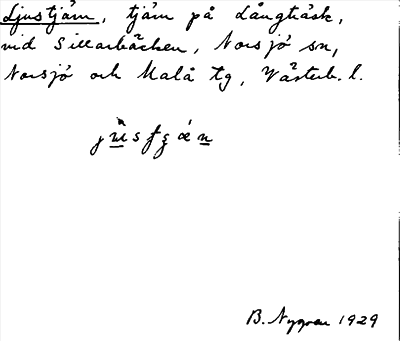 Ljustjärn, tjärn på Långträsk,
vid Sillarbäcken, Norsjö sn,
Norsjö och Malå tg, Västerb. l.
B. Nygren 1929